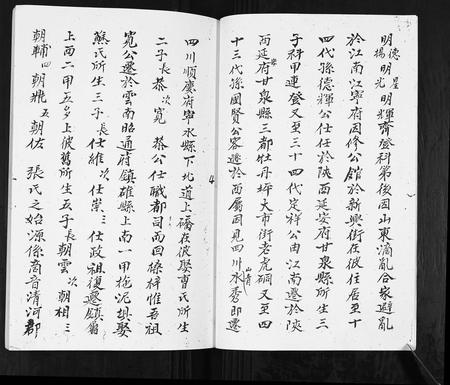 明德星
楊明光明輝齊登科第後因山東滴亂合家避亂
於江南江寧府因修公館於新興街在彼住居至十
四代孫德輝公仕任於陝西延安府甘泉縣所生三
子科甲連登又至三十四代定祥公由江南遷於陝
西延安府甘泉縣三都牡丹坪大市街老虎硐又至四
十三代孫國賢公客遊於西屬因見四川水秀山青即遷
四川順慶府鄰水縣下北道上磏在彼娶曹氏所生
二子長泰次寬泰公仕職都司而回桑梓惟吾祖
寬公遷於雲南昭通府鎮雄縣上南一甲拖泥垻娶
熊氏所生三子長仕維次仕崇三仕政祖復遷鎮翁
上西二甲五岁上彼舊所生五子長朝雲次朝相三
朝輔四朝鼎五朝佑 張氏之始源係南晉清河郡
4